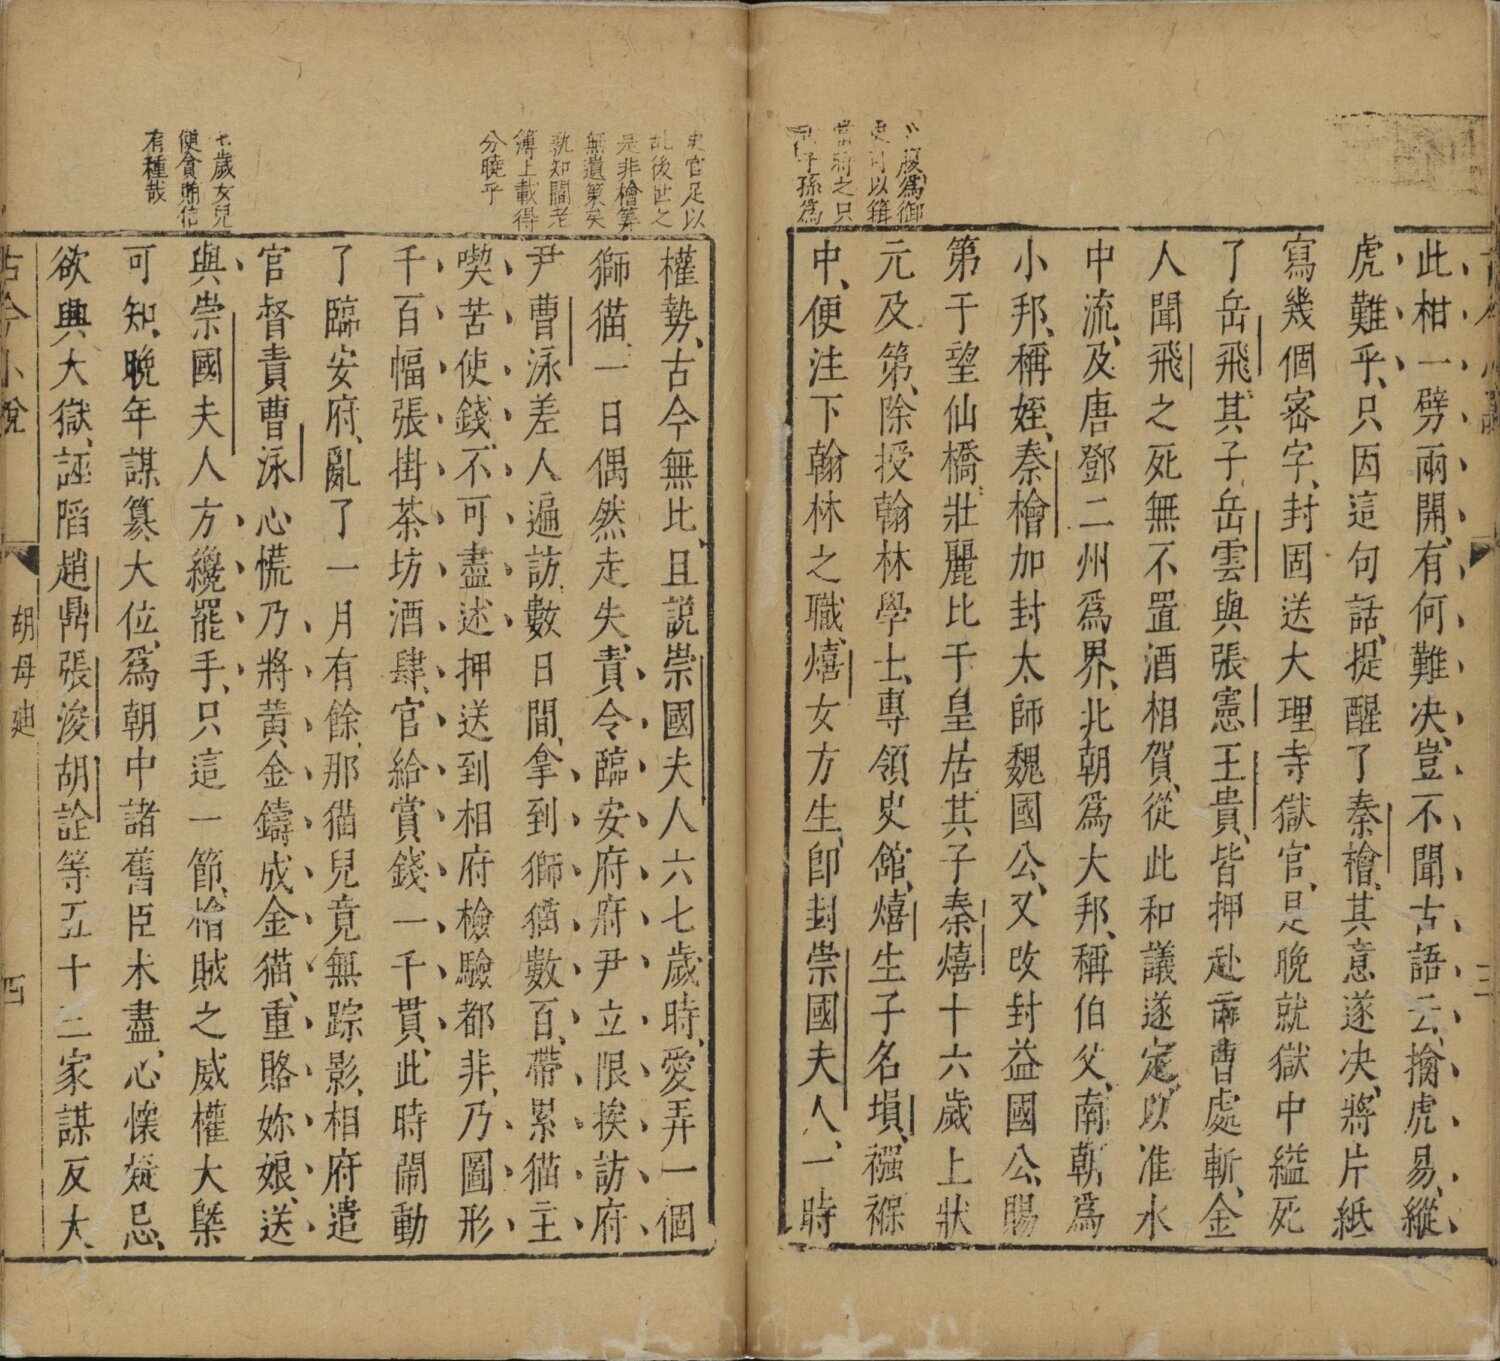 此柑一劈兩開有何難決豈不聞古語云擒虎易縱
虎難乎只因這句話提醒了秦檜其意遂決將片紙
寫幾個密字封固送大理寺獄官是晚就獄中縊死
了岳飛其子岳雲與張憲王貴皆押赴市曹處斬金
人聞飛之死無不置酒相賀從此和議遂定以淮水
中流及唐鄧二州爲界北朝爲大邦稱伯父南朝爲
小邦稱姪秦檜加封太師魏國公又改封益國公賜
第于望仙橋壯麗比于皇居其子秦熺十六歲上狀
元及第除授翰林學士專領史館熺生子名塤襁褓
中便注下翰林之職熺女方生即封崇國夫人一時
爲御
可以緝
將之只
子孫爲
權勢古今無比且說崇國夫人六七歲時愛弄一個
獅猫一日偶然走失責令臨安府府尹立限挨訪府
尹曹泳差人遍訪數日間拿到獅猫數百帶累猫主
喫苦使錢不可盡述押送到相府檢驗都非乃圖形
千百幅張掛茶坊酒肆官給賞錢一千貫此時鬧動
了臨安府亂了一月有餘那猫兒竟無踪影相府遣
官督責曹泳心慌乃將黃金鑄成金猫重賂妳娘送
與崇國夫人方纔罷手只這一節檜賊之威權大槩
可知晚年謀篡大位爲朝中諸舊臣未盡心懷疑忌
欲興大獄誣陷趙鼎張浚胡詮等五十三家謀反大
史官足以
亂後世之
是非檜筭
無遺策矣
孰知閻老
簿上載得
分曉乎
七歲女兒
便貪賄信
有種哉
古今小說
胡母廸
四